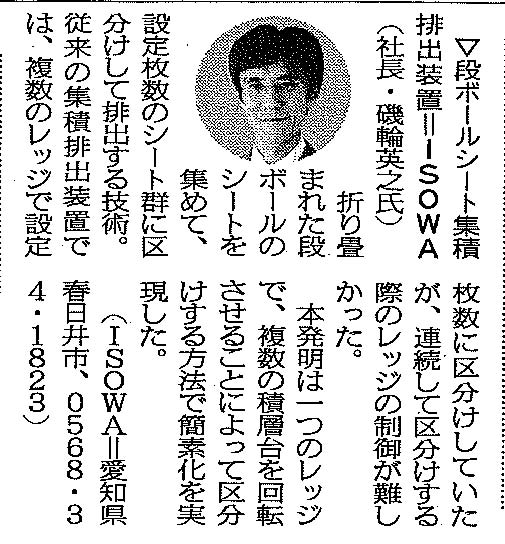 ▽段ボールシート集積
排出装置＝ＩＳＯＷＡ
（社長・磯輪英之氏）
折り畳
まれた段
ボールの
シートを
集めて、
設定枚数のシート群に区
分けして排出する技術。
従来の集積排出装置で
は、複数のレッジで設定
枚数に区分けしていた
が、連続して区分けする
際のレッジの制御が難し
かった。
本発明は一つのレッジ
で、複数の積層台を回転
させることによって区分
けする方法で簡素化を実
現した。
（ＩＳＯＷＡ＝愛知県
春日井市、０５６８・３
４・１８２３）